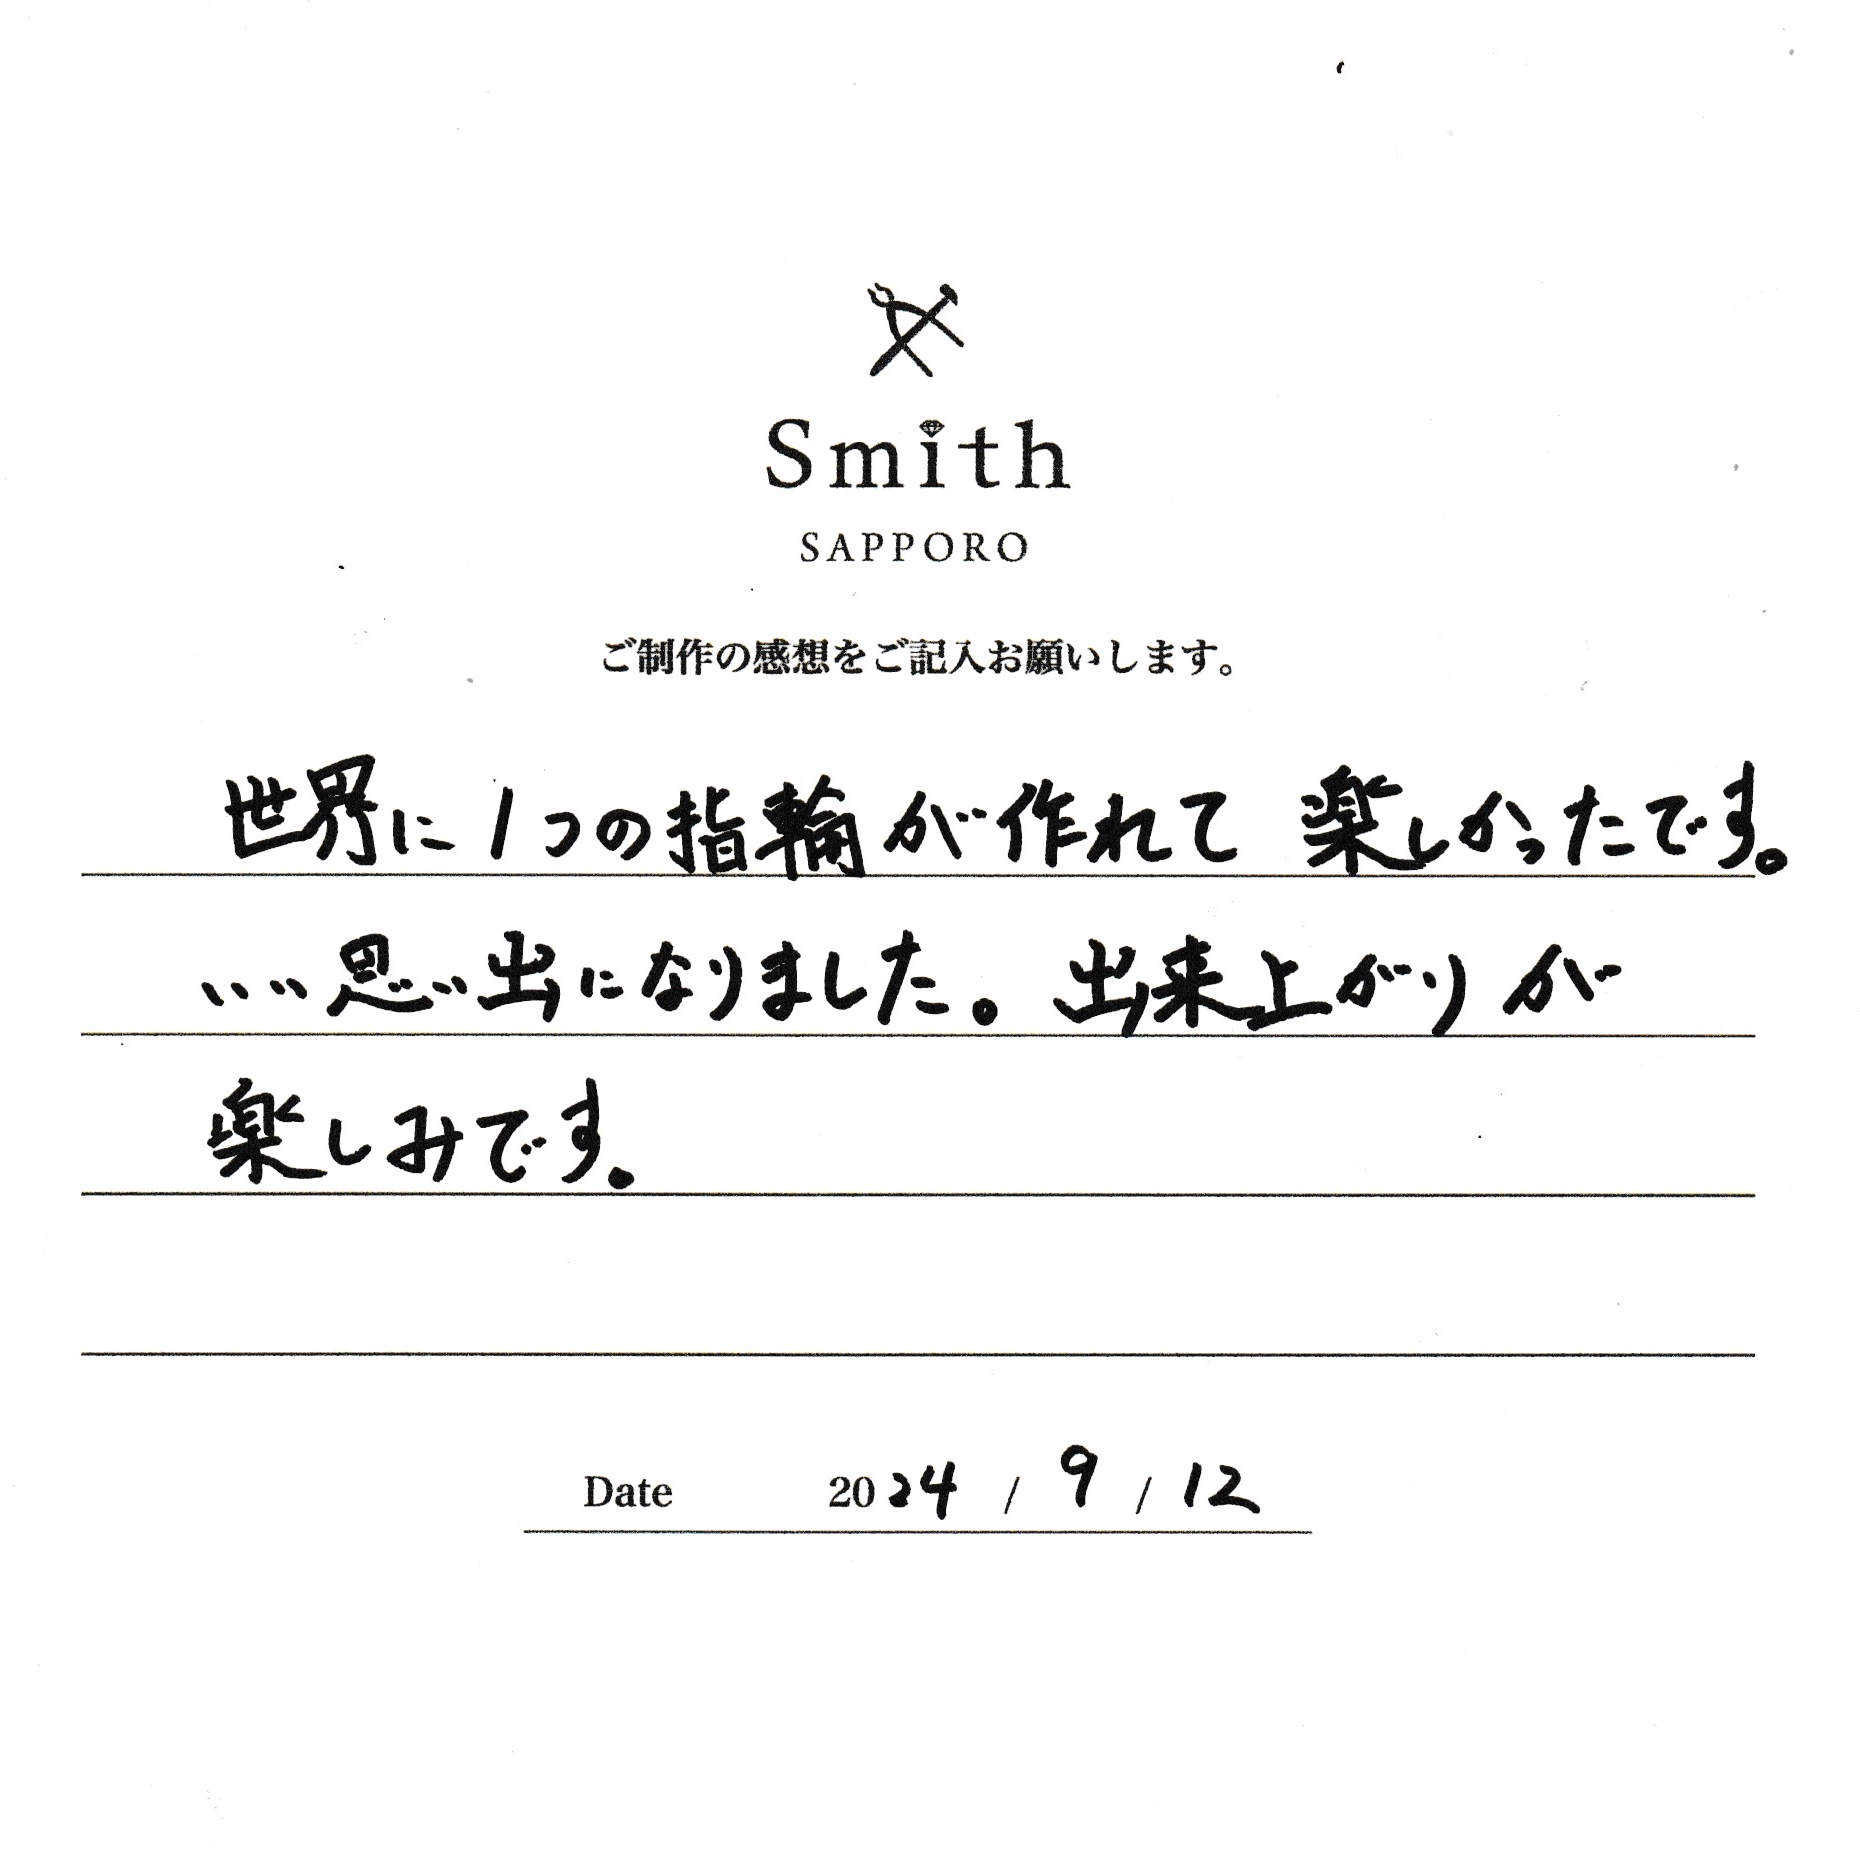 Smith
SAPPORO
ご制作の感想をご記入お願いします。
世界に1つの指輪が作れて楽しかったです。
いい思い出になりました。出来上がりが
楽しみです。
Date 2024 / 9 / 12